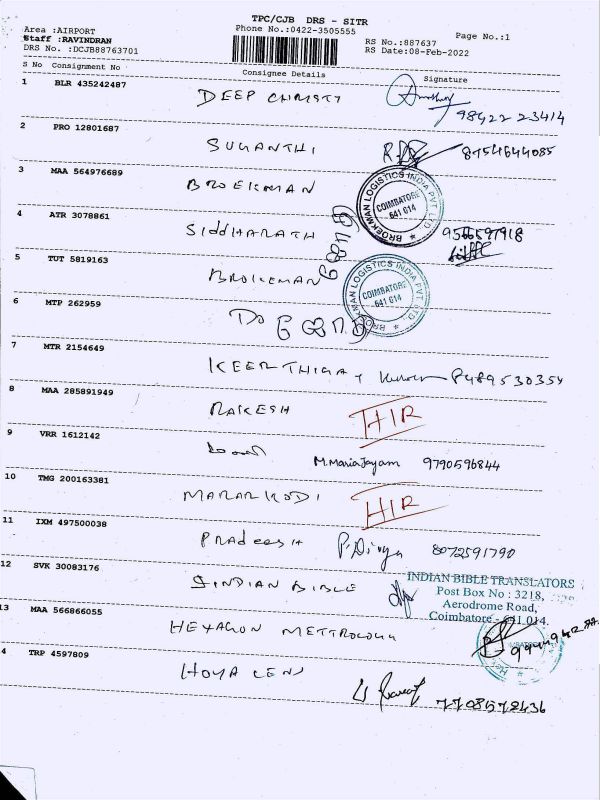 TPC/CJB DRS - SITR
Area :AIRPORT Phone No.:0422-3505555 Page No.:1
Staff :RAVINDRAN RS No.:887637
DRS No. :DCJB88763701 RS Date:08-Feb-2022
S No Consignment No Consignee Details Signature
1 BLR 435242487 DEEP CHRISTY 98422 23414
2 PRO 12801687 SUGANTHI 8754644085
3 MAA 564976689 BROEKMAN
BROEKMAN LOGISTICS INDIA PVT LTD. COIMBATORE 641 014
4 ATR 3078861 SIDDHARATH 9566597918
5 TUT 5819163 BROKEMAN
BROEKMAN LOGISTICS INDIA PVT LTD. COIMBATORE 641 014
6 MTP 262959 Do
7 MTR 2154649 KEERTHIGA 8489530354
8 MAA 285891949 RAKESH HIR
9 VRR 1612142 M.MariaJayam 9790596844
10 TMG 200163381 MARARKODI HIR
11 IXM 497500038 Pradeesh P.Divya 8072591790
12 SVK 30083176 INDIAN BIBLE
INDIAN BIBLE TRANSLATORS
Post Box No : 3218,
Aerodrome Road,
Coimbatore - 641 014.
13 MAA 566866055 HEXAGON METTROLOGY
4 TRP 4597809 HOYA LENS 7708572436